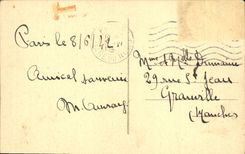 Paris le 8/6/22
Amical souvenir
Mme et Mlle
29 rue St Jean
Granville
(Manche)